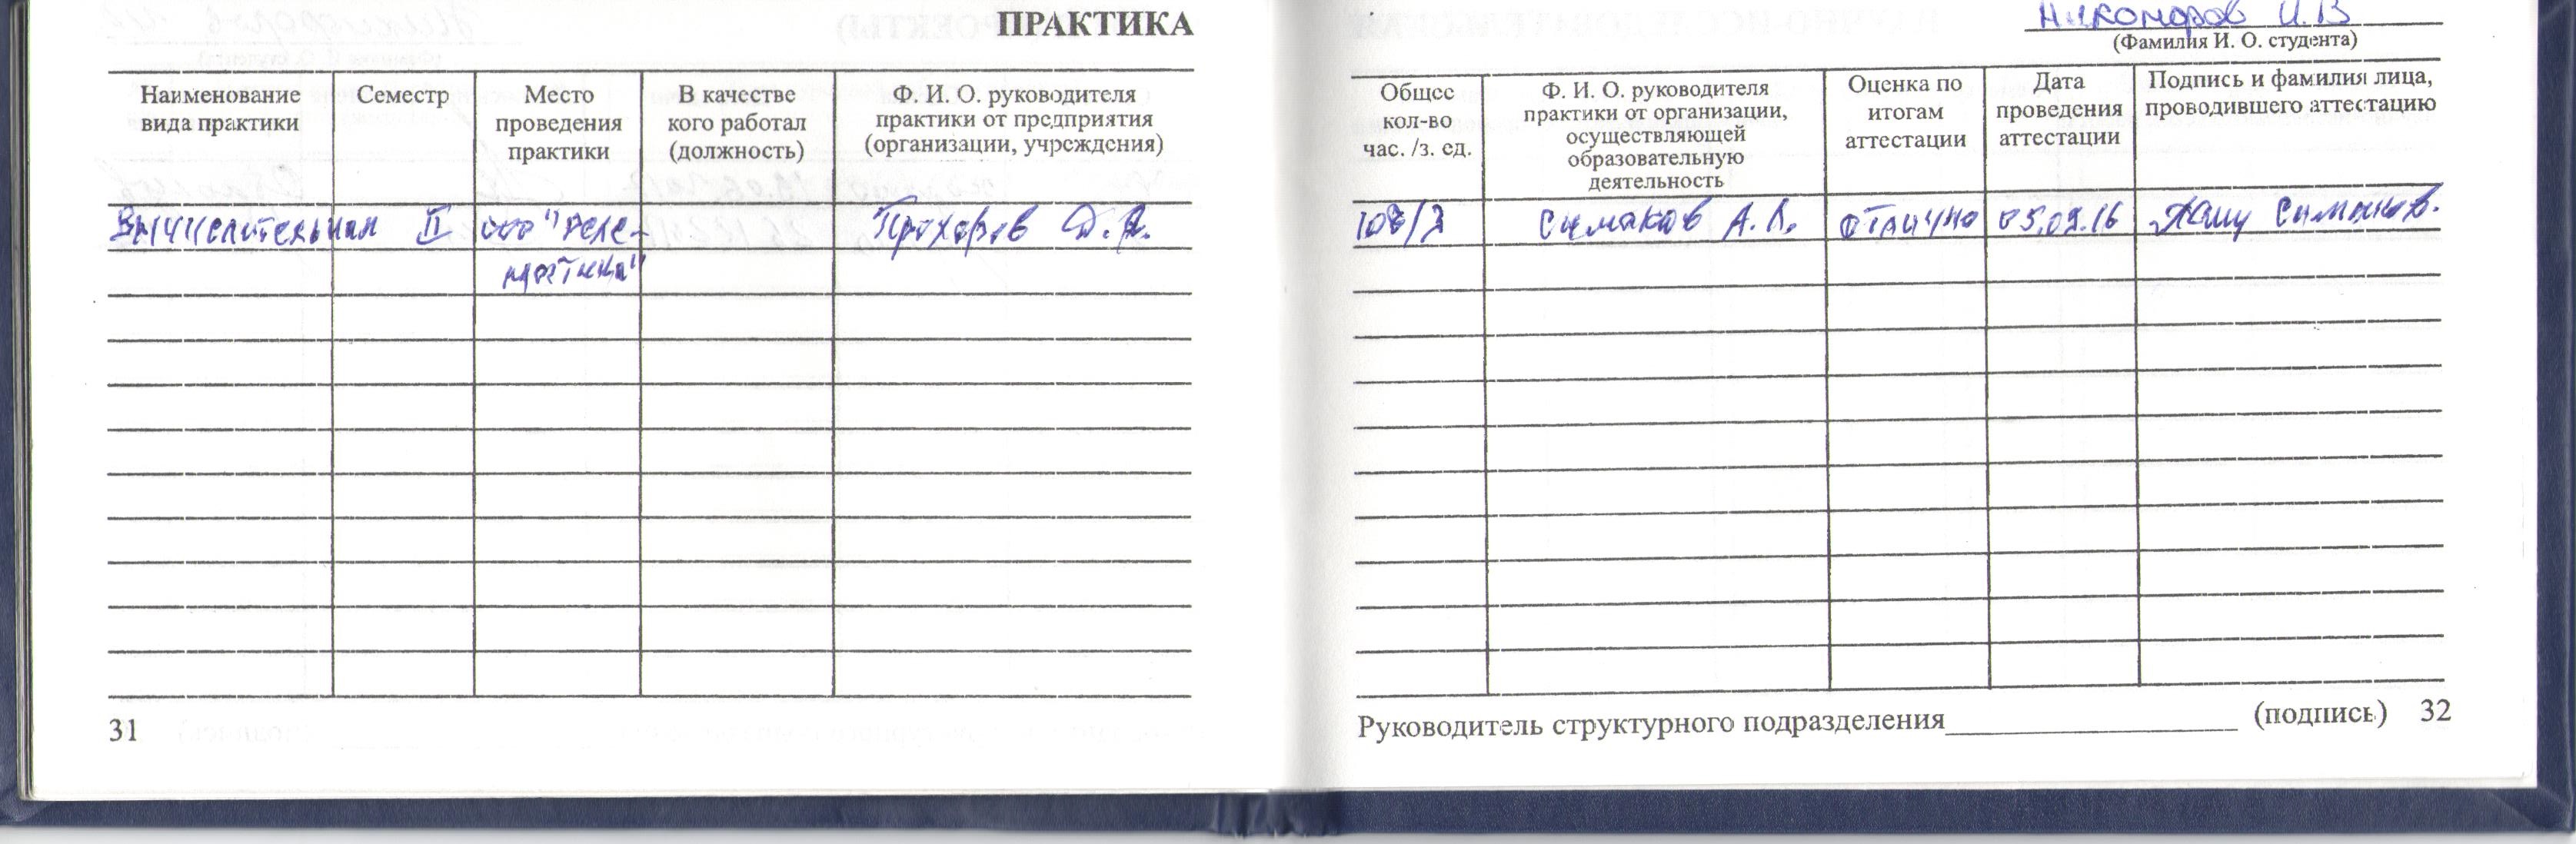 ПРАКТИКА
Наименование
вида практики
Семестр
Место
проведения
практики
В качестве
кого работал
(должность)
Ф. И. О. руководителя
практики от предприятия
(организации, учреждения)
Вычислительная II ооо "Теле- Прохоров
31
И.В
(Фамилия И. О. студента)
Общее
кол-во
час. /з. ед.
Ф. И. О. руководителя
практики от организации,
осуществляющей
образовательную
деятельность
Оценка по
итогам
аттестации
Дата
проведения
аттестации
Подпись и фамилия лица,
проводившего аттестацию
108/3 Симаков А. отлично 05.09.16 Симаков.
Руководитель структурного подразделения (подпись) 32